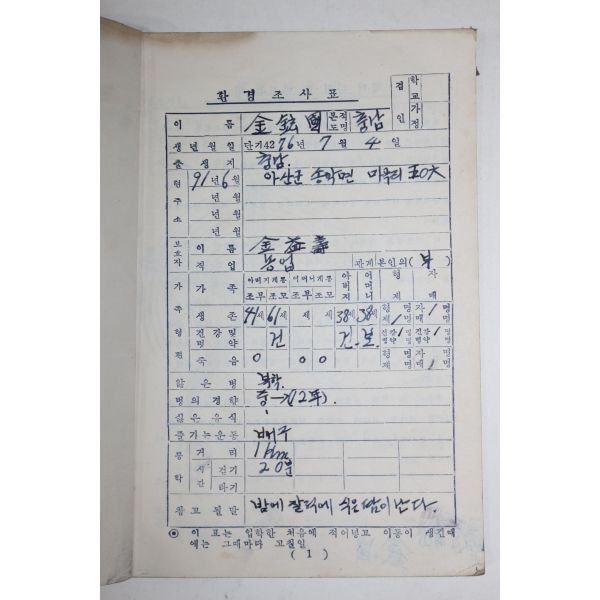 환경조사표
검인 학교 가정
이름 金鉉國 본적도명 충남
생년월일 단기4276년 7월 4일
출생지 충남.
현주소 91년6월 아산군 송악면 마곡리 五0六
년 월
년 월
년 월
보호자 이름 金益壽
직업 농업 관계 본인의(부)
가족 아버지계통 어머니계통 아버지 어머니 형제 자매
조부 조모 조부 조모
생존 세 61세 세 세 38세 38세 형 명 제 명 자 명 매 명
건강 및 병약 건 건 보
죽음 0 0 0 형 명 제 명 자 명 매 명
앓은병
병의경향
싫은음식
즐기는운동 배구
통학 거리 1km
시간 걷기 20분
타기
참고될만 밤에 잘적에 식은땀이 난다.
◉ 이 표는 입학한 처음에 적어넣고 이동이 생긴때
에는 그때마다 고칠일
(1)